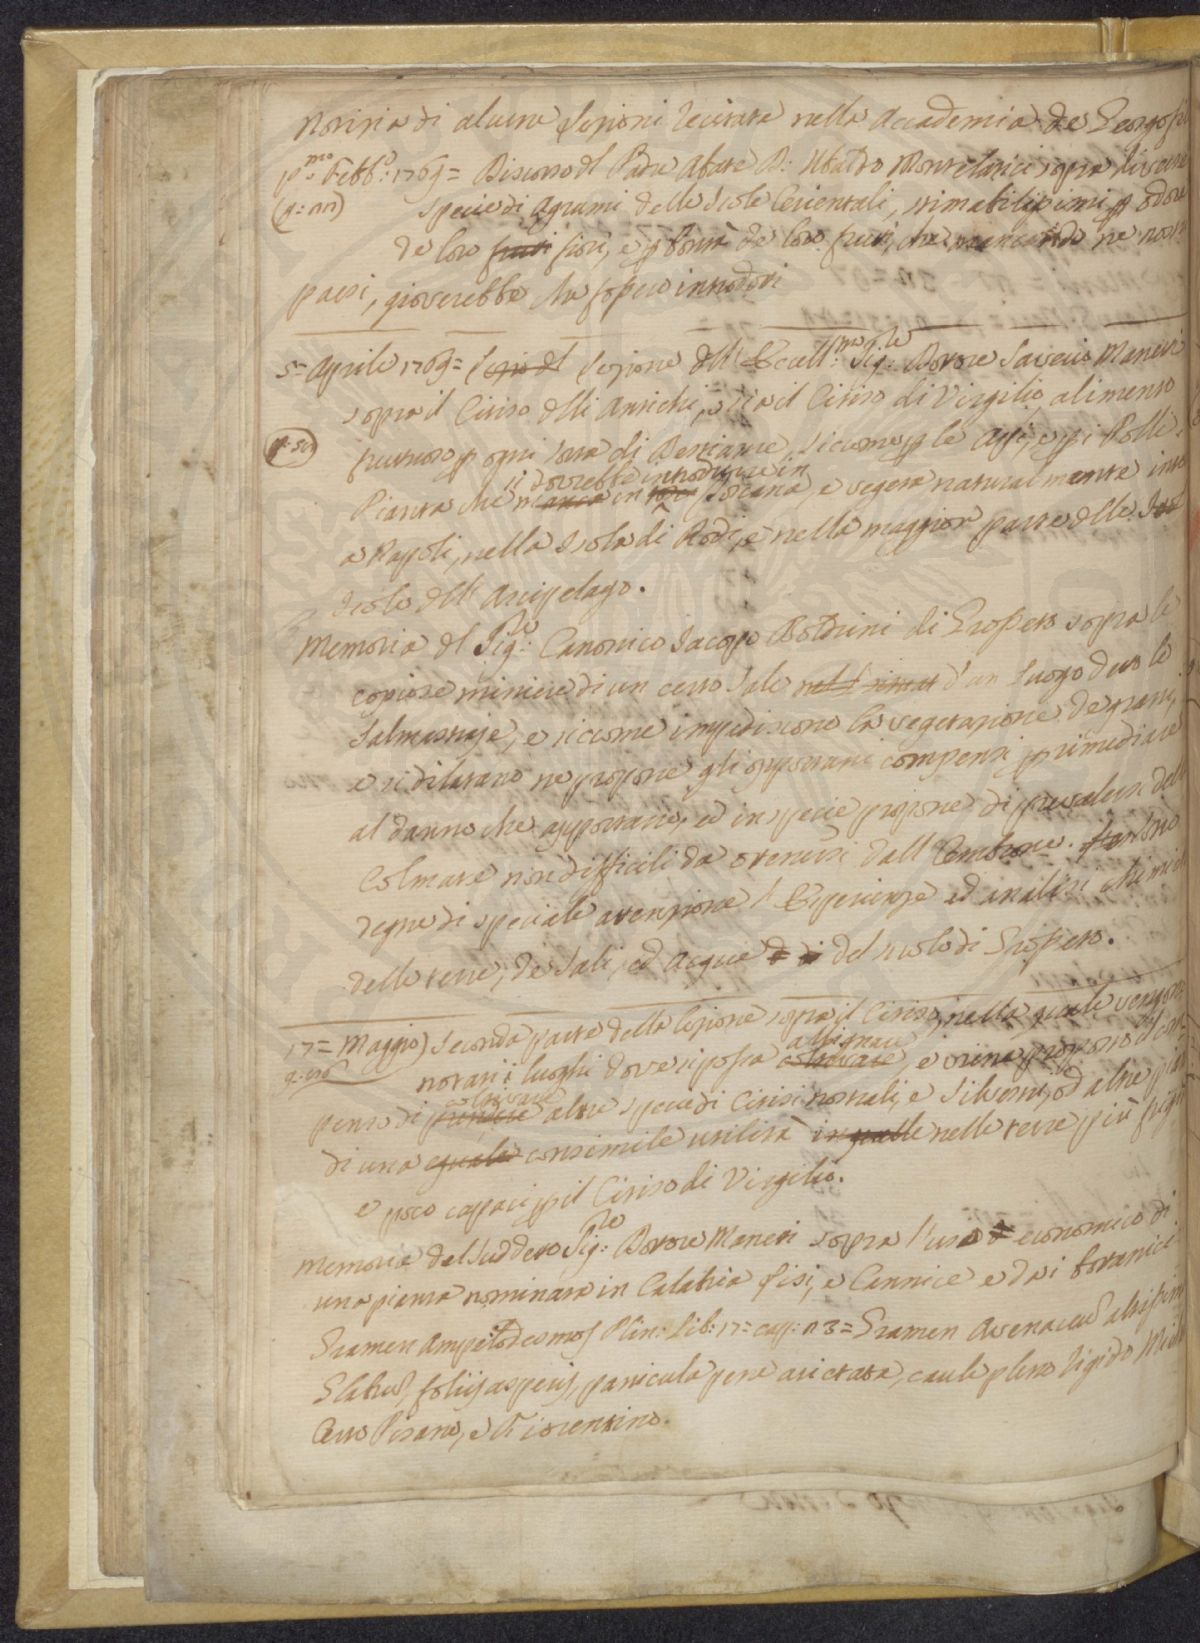 Notizia di alcune Lezioni recitate nella Accademia de Georgofili
p.mo Febb.o 1769 = Discorso del Padre Abate D: Ubaldo Montelatici sopra diverse
(q: nn) Specie di Agrumi delle Isole Orientali, stimabilissimi p odore
de loro frutti fiori, e p bontà de loro frutti, che mancando ne nostri
paesi, gioverebbe che fossero introdotti
5 = Aprile 1769 = Lezio del Lezione dell' Eccell.mo Sig.re Dottore Saverio Manetti
sopra il Citiso delli Antichi, o sia il Citiso di Virgilio alimento
fruttuoso p ogni sorta di Bestiame, siccome p le Api, e p i Polli.
si dovrebbe introdurre in
Pianta che manca in tutta Toscana, e vegeta naturalmente
a Napoli, nella Isola di Rodi, e nella maggior parte delle Isol
Isole dell' Arcipelago.
Memoria del Sig.re Canonico Jacopo Boldrini di Grosseto sopra le
copiose miniere di un certo Sale d'un Luogo detto le
Salmastraje, e siccome impediscono la vegetazione de grani,
e si dilatano ne propone gli opportuni compensi p rimediare
al danno che apportano, ed in specie propone di prevalersi delle
Colmate non difficili da ottenersi dall' Ombrone. Sono
degne di speciale attenzione l' Esperienze ed analisi chimiche
delle terre, de Sali, ed Acque del suolo di Grosseto.
17 = Maggio) Seconda parte della Lezione sopra il Citiso, nella quale vengono
assegnare
notati i luoghi dove si possa coltivare, e viene proposto il com
coltivare
penso di altre specie di Citisi nostrali, e Silvestri, od altre piante
di una eguale consimile utilità in quelle nelle terre più
e poco capaci p il Citiso di Virgilio.
Memoria del Suddetto Sig.re Dottore Manetti sopra l'uso economico di
una pianta nominata in Calabria Lisi, e Cannice e dai Botanici
Gramen Ampelodesmos Plin: Lib: 17 = cap: n 3 = Gramen Avenaceum altissimum
Glabrum, foliis asperis, panicula pene aristata, caule pleno rigido
Orto Pisano, e Fiorentino.